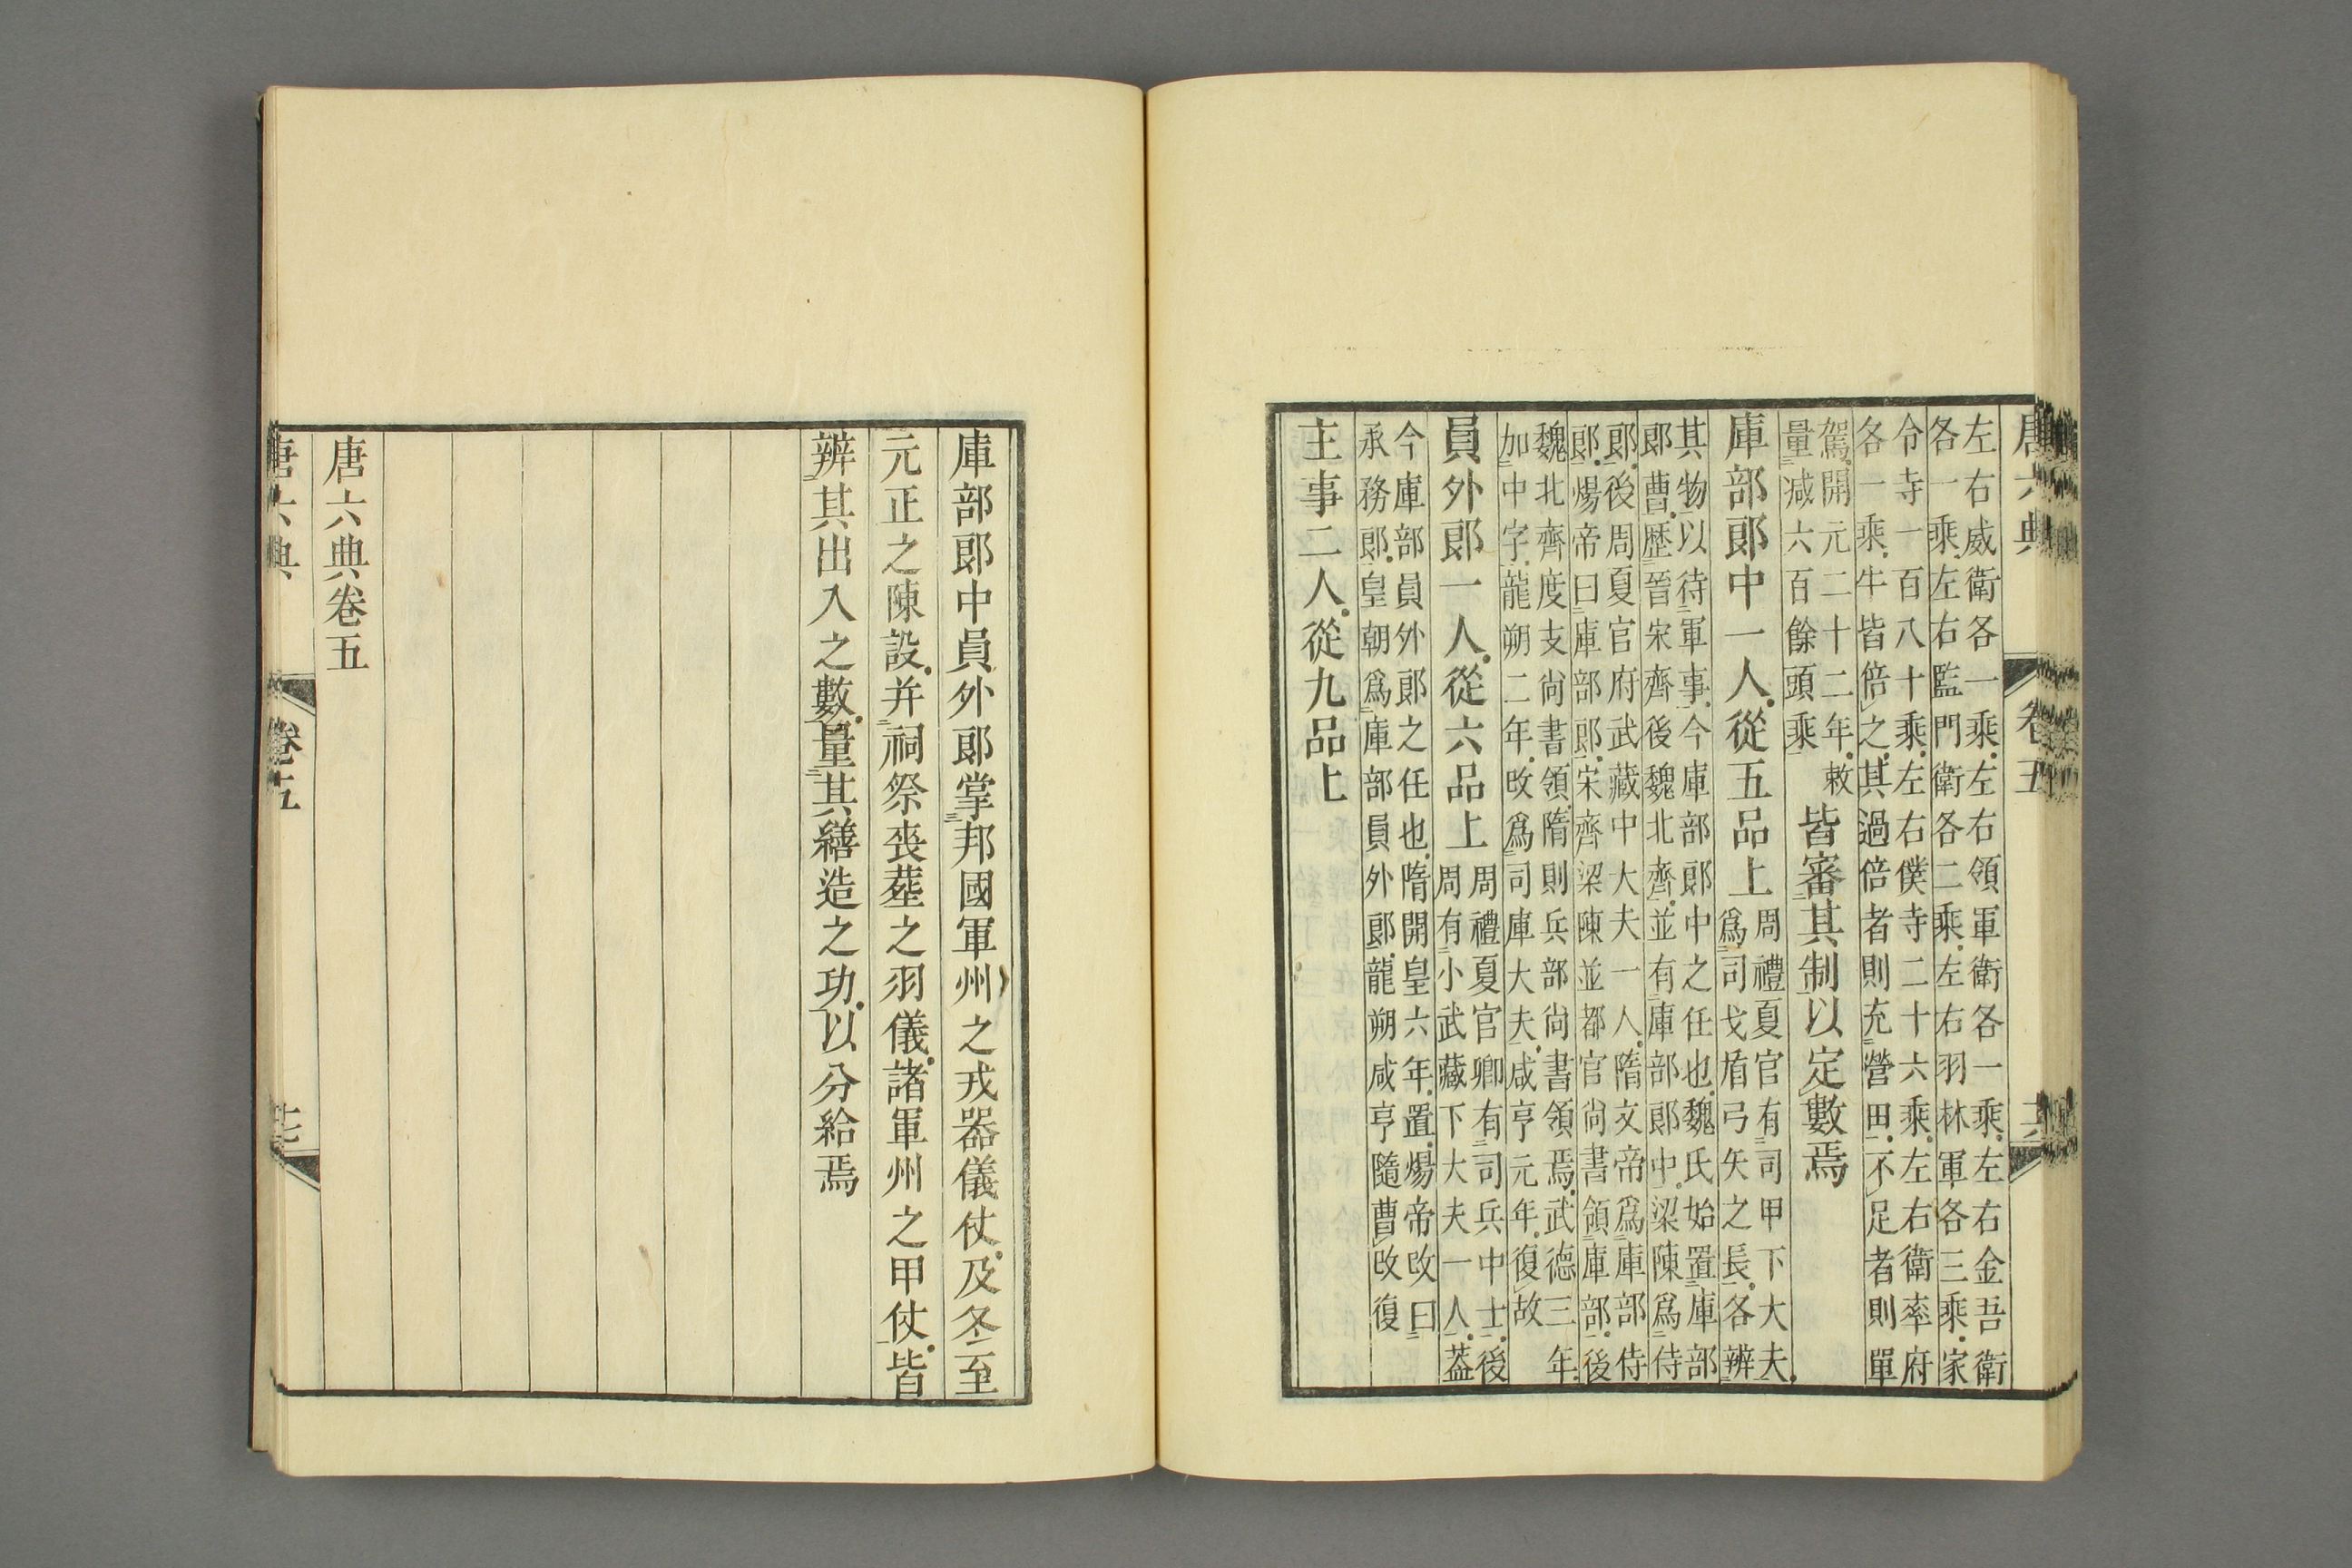 左右威衛各一乘左右領軍衛各一乘左右金吾衛
各一乘左右監門衛各二乘左右羽林軍各三乘家
令寺一百八十乘左右僕寺二十六乘左右衛率府
各一乘牛皆倍之其過倍者則充營田不足者則單
駕開元二十二年敕
量減六百餘頭乘
皆審其制以定數焉
庫部郎中一人從五品上
周禮夏官有司甲下大夫
爲司戈盾弓矢之長各辨
其物以待軍事今庫部郎中之任也魏氏始置庫部
郎曹歷晉宋齊後魏北齊並有庫部郎中梁陳爲侍
郎後周夏官府武藏中大夫一人隋文帝爲庫部侍
郎煬帝曰庫部郎宋齊梁陳並都官尚書領庫部後
魏北齊度支尚書領隋則兵部尚書領焉武德三年
加中字龍朔二年改爲司庫大夫咸亨元年復故
員外郎一人從六品上
周禮夏官卿有司兵中士後
周有小武藏下大夫一人葢
今庫部員外郎之任也隋開皇六年置煬帝改曰
承務郎皇朝爲庫部員外郎龍朔咸亨隨曹改復
主事二人從九品上
庫部郎中員外郎掌邦國軍州之戎器儀仗及冬至
元正之陳設并祠祭喪葬之羽儀諸軍州之甲仗皆
辨其出入之數量其繕造之功以分給焉
唐六典卷五
唐六典
卷五